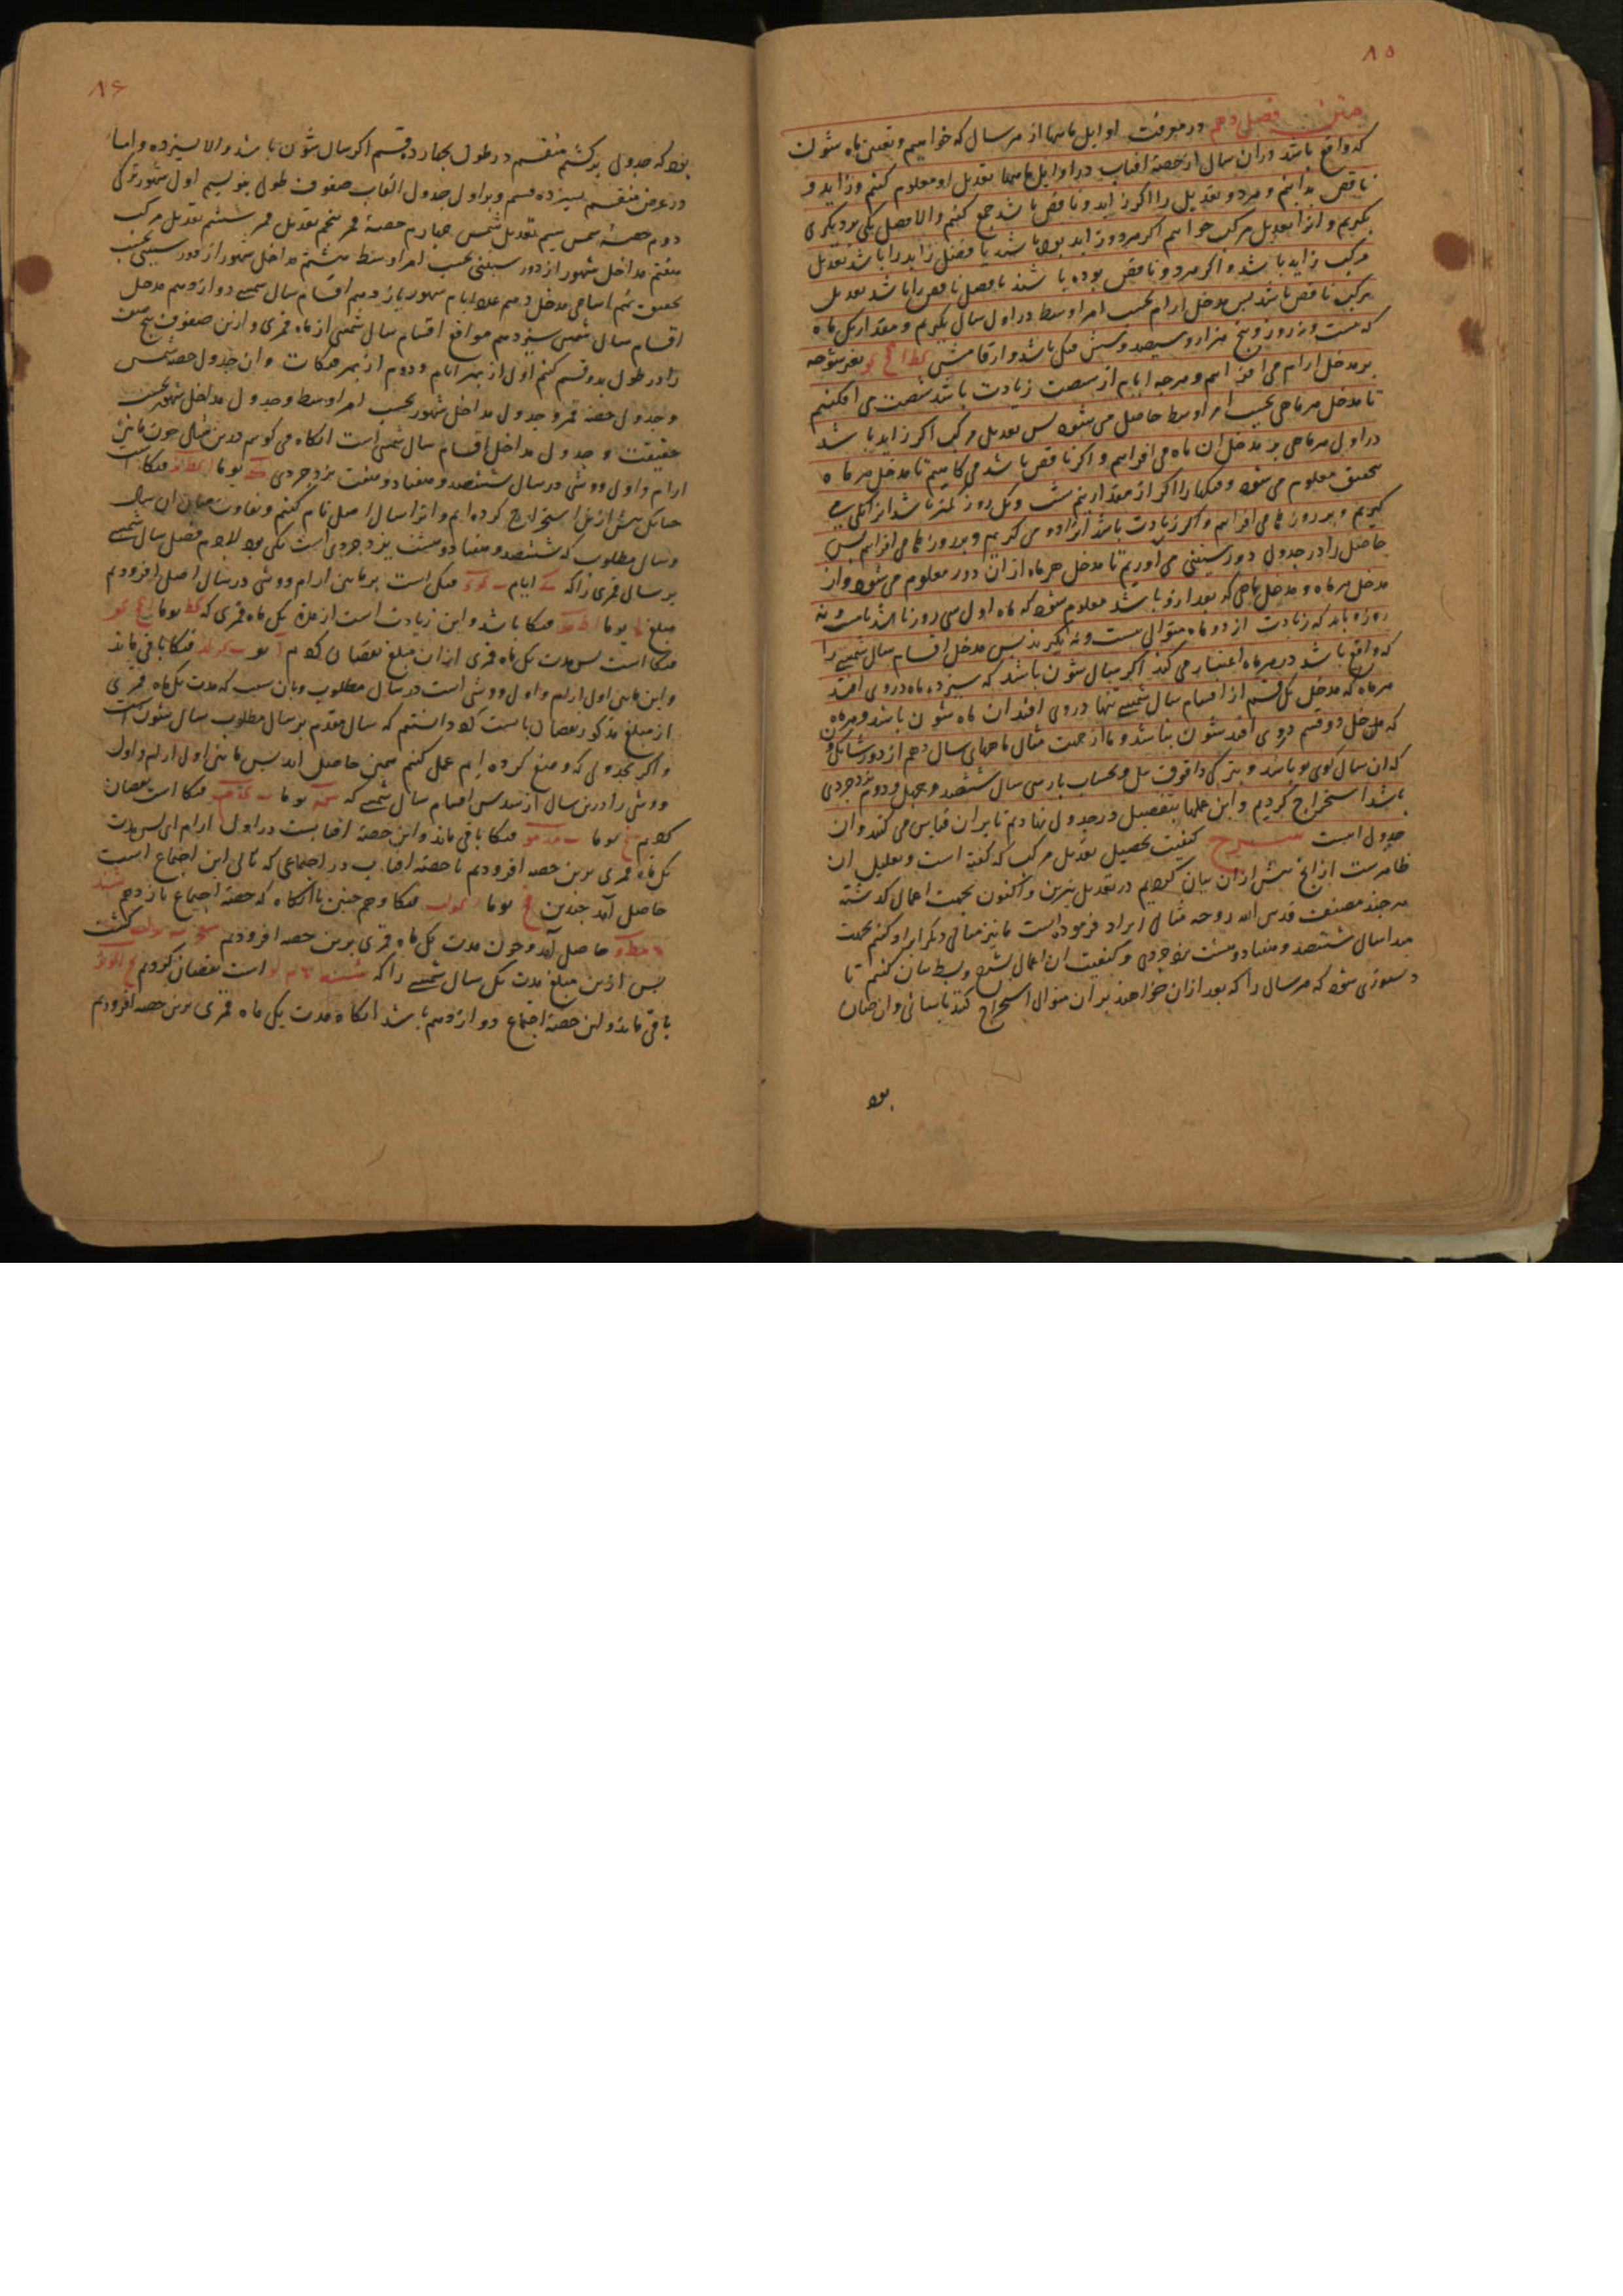 ۸۵
متن فصل دهم در معرفت اوایل ماهها از هر سال که خواهیم و تعیین ماه شون
که واقع باشد در ان سال از حصهٔ افتاب در اوایل ماهها تعدیل او معلوم کنیم و زاید و
ناقص بدانیم و هر دو تعدیل را اکر زاید و ناقص باشد جمع کنیم والا فضل یکی بر دیکری
بکیریم و انرا تعدیل مرکب خوانیم اکر هر دو زاید بود یا فضل زاید را باشد تعدیل
مرکب زاید باشد و اکر هر دو ناقص بوده باشند یا فضل ناقص را باشد تعدیل
مرکب ناقص باشد پس مدخل ارام بحسب امر اوسط در اول سال بکیریم و مقدار یک ماه
که بیست و نه روز و پنج هزار و سیصد و شش فنک باشد و ارقامش
بر مدخل ارام می افزاییم و هر چه ایام از شصت زیادت باشد شصت می افکنیم
تا مدخل هر ماهی بحسب امر اوسط حاصل می شود پس تعدیل مرکب اکر زاید باشد
در اول هر ماهی بر مدخل ان ماه می افزاییم و اکر ناقص باشد می کاهیم تا مدخل هر ماه
بحقیق معلوم می شود و فنکها را اکر از مقدار نیم شب و یک روز کمتر باشد انرا یکی
کیریم و بر روزها می افزاییم و اکر زیادت باشد انرا دو می کیریم و بر روزها می افزاییم پس
حاصل را در جدول دور ستینی می اوریم تا مدخل هر ماه از ان دور معلوم می شود و از
مدخل هر ماه و مدخل ماهی که بعد از و باشد معلوم شود که ماه اول سی روز باشد یا بیست و نه
روز و باید که زیادت از دو ماه متوالی بیست و نه نکیرند پس مدخل اقسام سال شمسی را
که واقع باشد در هر ماه اعتبار می کند اکر سال شون باشد که سیزده ماه در وی افتد
هر ماه که مدخل یک قسم از اقسام سال شمسی تنها در وی افتد ان ماه شون باشد و هر ماه
که مدخل دو قسم در وی افتد شون نباشد و ما از جهت مثال ماههای سال دهم از دور شانکون
که ان سال کوی بو باشد و بترکی داقوق ییل و بحساب پارسی سال ششصد و چهل و دوم یزدجردی
باشد استخراج کردیم و این عملها بتفصیل در جدول نهادیم تا بران قیاس می کنند و ان
جدول اینست شرح کیفیت تحصیل تعدیل مرکب که کفته است و تعلیل ان
ظاهرست از انچ پیش از ان بیان کردیم در تعدیل نیرین و اکنون بجهت اعمال کذشته
هر چند مصنف قدس الله روحه مثالی ایراد فرموده است ما نیز مثالی دیکر ایراد کنیم بجهت
مبدا سال ششصد و هفتاد و هشت یزدجردی و کیفیت ان اعمال بشرح و بسط بیان کنیم تا
دستوری شود که هر سال را که بعد از ان خواهند بر ان منوال استخراج کنند باسانی و ان چنان
بود
۸۶
بود که جدولی برکشیم منقسم در طول بچهارده قسم اکر سال شون باشد والا بسیزده و اما
در عرض منقسم بسیزده قسم و بر اول جدول القاب صفوف طول بنویسیم اول شهور ترکی
دوم حصهٔ شمس سیم تعدیل شمس چهارم حصهٔ قمر پنجم تعدیل قمر ششم تعدیل مرکب
هفتم مداخل شهور از دور ستینی بحسب امر اوسط هشتم مداخل شهور از دور ستینی بحسب
حقیقت نهم اسامی مدخل دهم عدد ایام شهور یازدهم اقسام سال شمسی دوازدهم مدخل
اقسام سال شمسی سیزدهم مواقع اقسام سال شمسی از ماه قمری و ازین صفوف پنج صف
را در طول بدو قسم کنیم اول از بهر ایام و دوم از بهر فنکات و ان جدول حصهٔ شمس
و جدول حصهٔ قمر و جدول مداخل شهور بحسب امر اوسط و جدول مداخل شهور بحسب
حقیقت و جدول مداخل اقسام سال شمسی است انکاه می کوییم درین مثال چون مابین
ارام و اول ووشی در سال ششصد و هفتاد و هفت یزدجردی یوما فنکا است
چنانک پیش ازین استخراج کرده ایم و انرا سال اصل نام کنیم و تفاوت میان ان سال
و سال مطلوب که ششصد و هفتاد و هشت یزدجردی است یکی بود لاجرم فضل سال شمسی
بر سال قمری را که ایام فنکی است بر مابین ارام و ووشی در سال اصل افزودیم
مبلغ یوما فنکا باشد و این زیادت است از مدة یک ماه قمری که یوما
فنکا است پس مدت یک ماه قمری از ان مبلغ نقصان کردیم یو فنکا باقی ماند
و این مابین اول ارام و اول ووشی است در سال مطلوب و بان سبب که مدت یک ماه قمری
از مبلغ مذکور نقصان بایست کرد دانستیم که سال مقدم بر سال مطلوب سال شون است
و اکر بجدولی که وضع کرده ایم عمل کنیم همین حاصل اید پس مابین اول ارام و اول
ووشی را درین سال از سدس اقسام سال شمسی که یوما فنکا است نقصان
کردیم یوما فنکا باقی ماند و این حصهٔ افتابست در اول ارام ای پس مدت
یک ماه قمری برین حصه افزودیم تا حصهٔ افتاب در اجتماعی که تالی این اجتماع است
حاصل آمد چندین یوما فنکا و هم چنین تا انکاه که حصهٔ اجتماع یازدهم
حاصل آمد و چون مدت یک ماه قمری برین حصه افزودیم کشت
پس ازین مبلغ مدت یک سال شمسی را که است نقصان کردیم
باقی ماند و این حصهٔ اجتماع دوازدهم باشد انکاه مدت یک ماه قمری برین حصه افزودیم